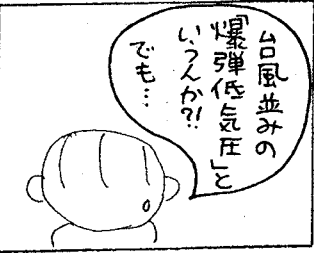 台風並みの
「爆弾低気圧」と
いうんか?!
でも…